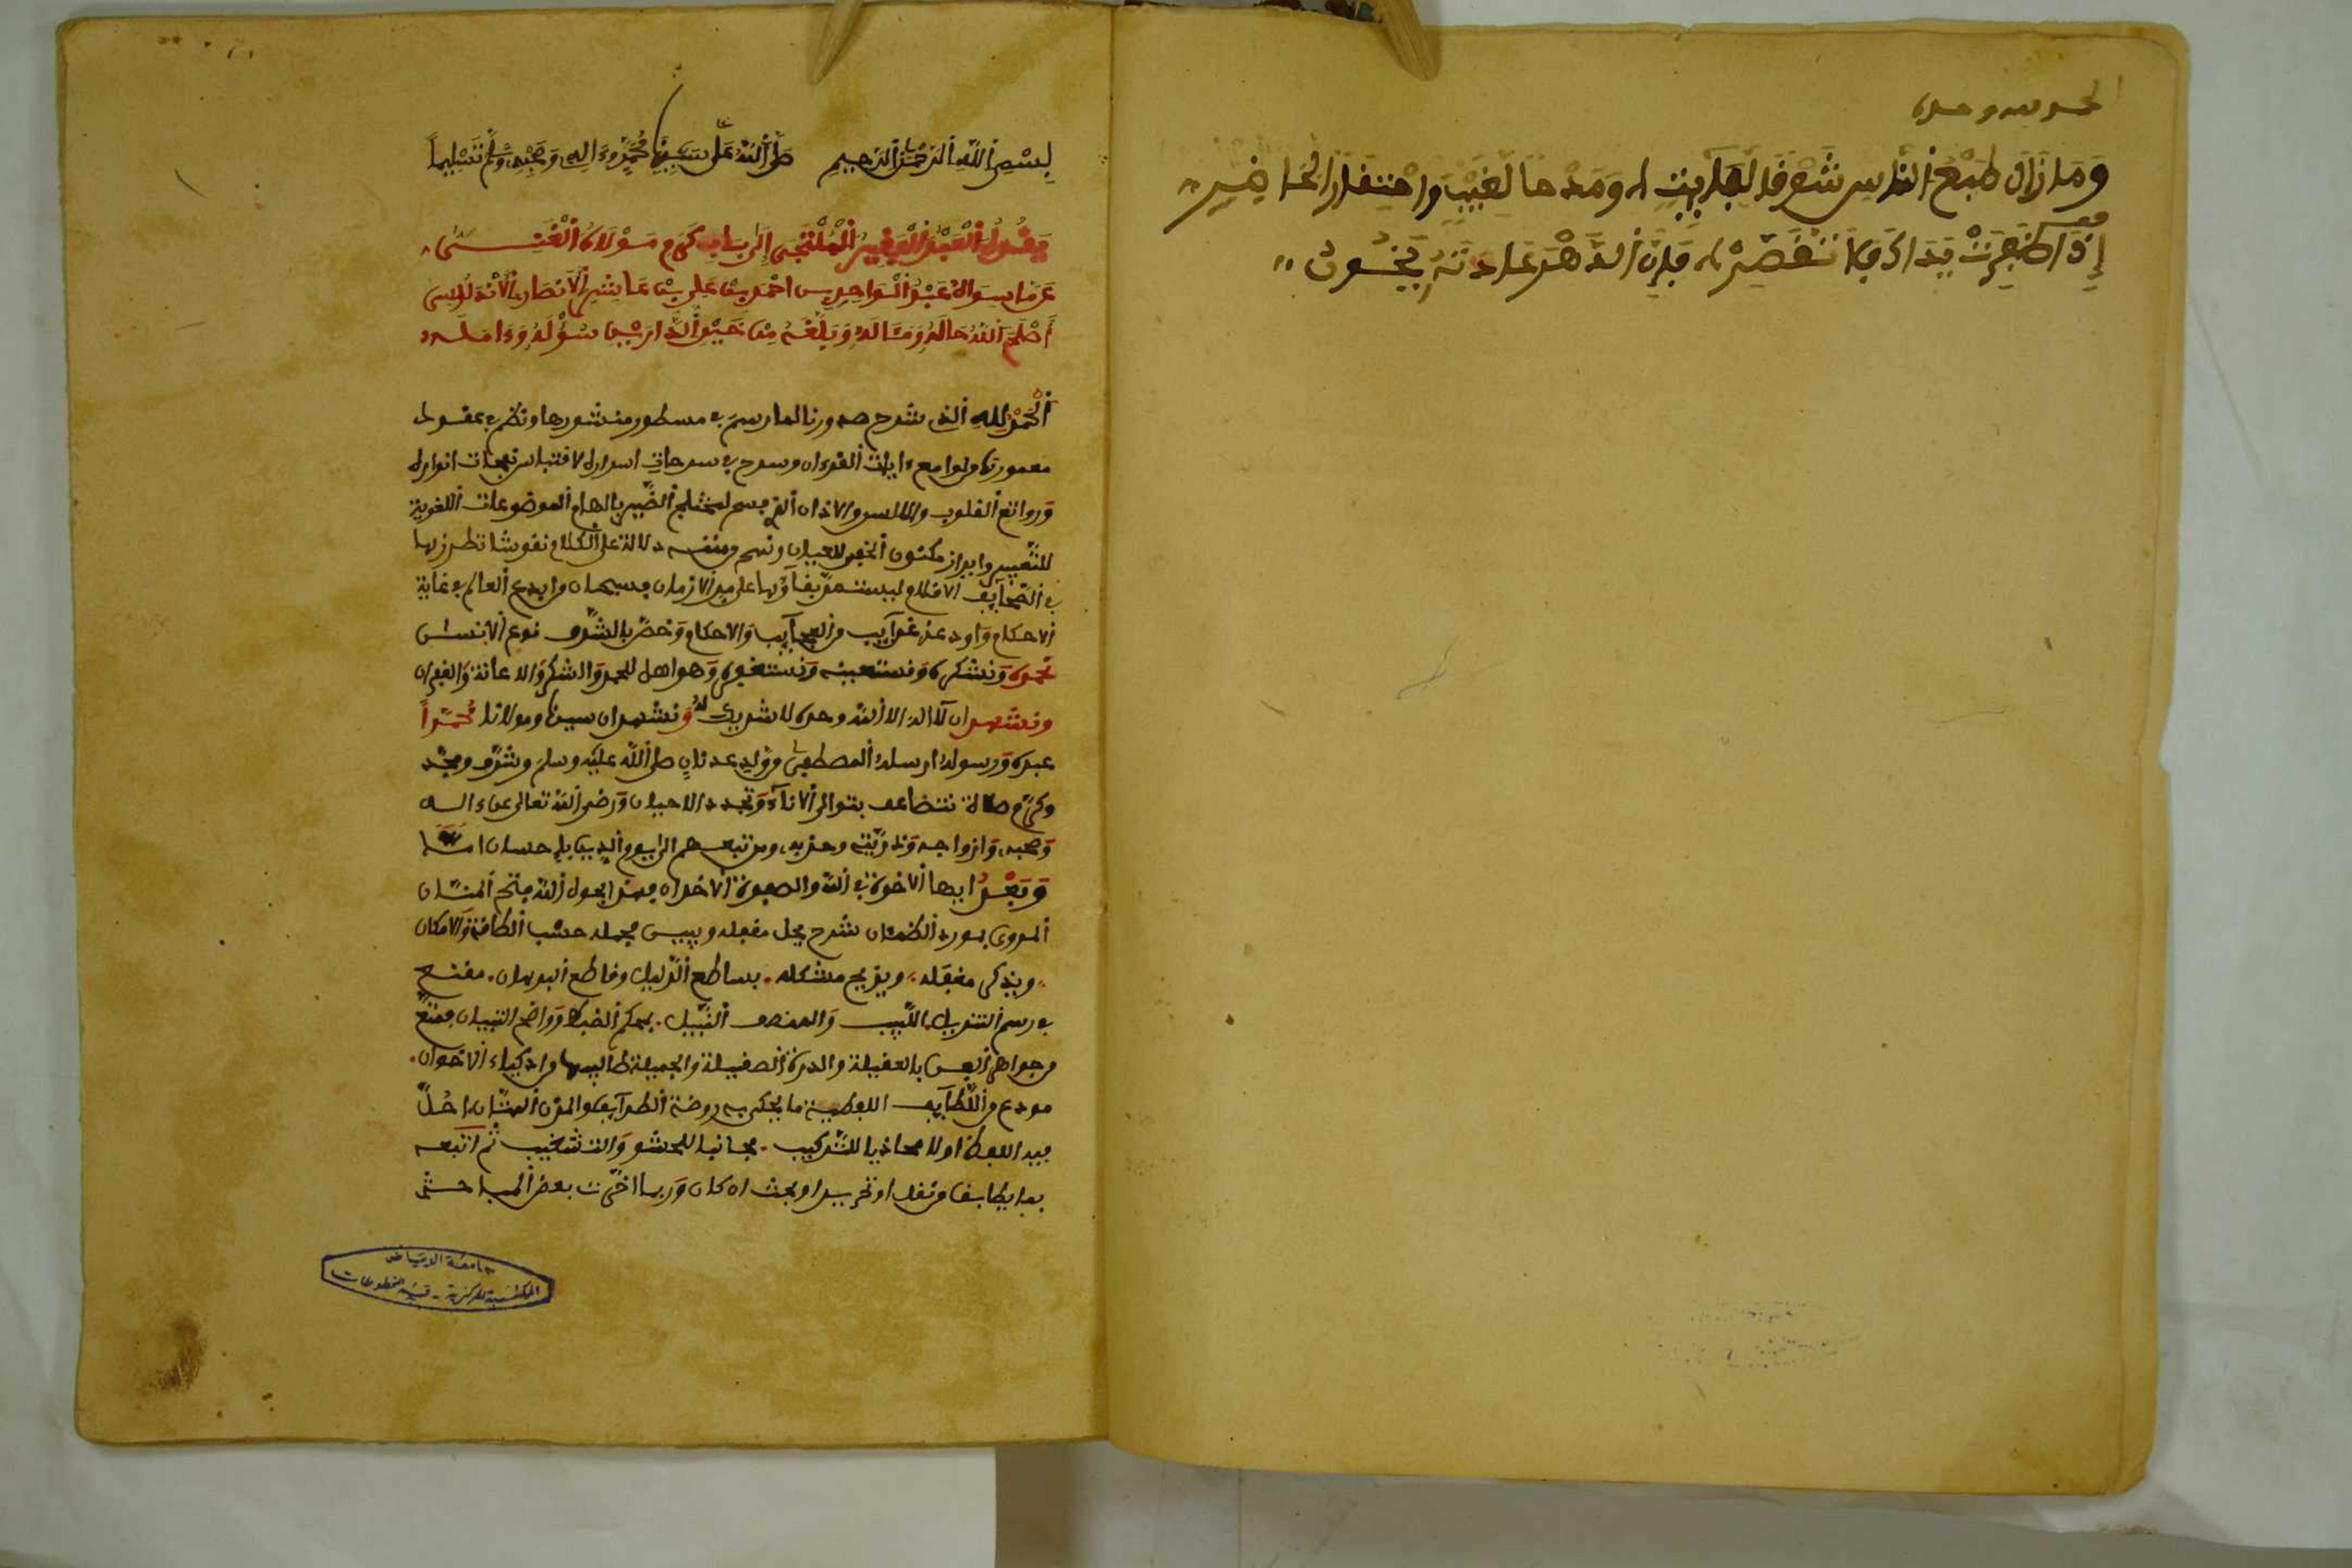 الحمد لله وحده
وَمَا زَالَ طَبْعُ النَّاسِ شَوْقًا لِغَايِبٍ وَمَدْحًا لِغَيْبٍ وَاحْتِقَارًا لِحَاضِرٍ
إِذَا ظَفِرَتْ يَدَاكَ فَلَا تُقَصِّرْ فَإِنَّ الدَّهْرَ عَادَتُهُ يَخُونُ
بِسْمِ اللَّهِ الرَّحْمَنِ الرَّحِيمِ صَلَّى اللَّهُ عَلَى سَيِّدِنَا مُحَمَّدٍ وَءَالِهِ وَصَحْبِهِ وَسَلَّمَ تَسْلِيمًا
يَقُولُ الْعَبْدُ الْفَقِيرُ الْمُلْتَجِي إِلَى بَابِ كَرَمِ مَوْلَاهُ الْغَنِي
عَمَّا سِوَاهُ عَبْدُ الْوَاحِدِ بن احْمَد بْن عَلِي بْن عَاشِر الْأَنْصَارِي الْأَنْدَلُسِي
أَصْلَحَ اللَّهُ حَالَهُ وَمَآلَهُ وَبَلَّغَهُ مِنْ خَيْرِ الدَّارَيْنِ سُؤْلَهُ وَءَامَالَه
الْحَمْدُ لِلَّهِ الذي شرح صدورنا لما رسم في مسطور منشورها ونظم في عقول
معمورتها لوامع ءايات القرءان وسرح في سرحات اسراره لاقتباس انواره
وروائع القلوب والالسن والاذان الضمير بالهام الموضوعات اللغوية
للتعبير وابراز مكنون الخبر للعيان دلالة على الكلام نقوشا تطرزبها
في الصحايف الاقلام ليستمر بقاؤها على مر الازمان فسبحان من ابدع العالم في غاية
الاحكام واودعه غرايب من العجايب والاحكام وخص بالشرف نوع الانسان
نحمده ونشكره ونستعينه ونستغفره وهو اهل للحمد والشكر والاعانة والغفران
ونشهد ان لا اله الا الله وحده لا شريك له ونشهد ان سيدنا ومولانا محمداً
عبده ورسوله ارسله المصطفى من ولد عدنان صلى الله عليه وسلم وشرف ومجد
وكرم صلاة تتضاعف بتوالي الاناء وتجدد الاحيان ورضي الله تعالى عن ءاله
وصحبه وازواجه وذريته وحزبه ومن تبعهم الى يوم الدين باحسان اما
وَبَعْدُ ايها الاخوة في الله والصفوة الاخدان فهذا بحول الله فتح المنان
المروي بمورد الظمئان شرح يحل مقفله ويبين مجمله حسب الطاقة والامكان
ويذكر مغفله ويزيح مشكله بساطع الدليل وقاطع البرهان مقنع
في رسم التنزيل اللبيب والمنصف النبيل بمحكم الضبط وواضح التبيان ممتع
من جواهر الفن بالعقيلة والدرة الصقيلة والجميلة طالبيها من اذكياء الاخوان
مودع من اللطايف اللفظية ما يحكي به روضة الطرايف والمزن الهتان احل
فيه اللفظ اولا محاذيا للتركيب مجانبا للحشو والتشغيب ثم اتبعه
بما يطابقه من نقل او تحرير او بحث ان كان وربما اخرت بعض المباحث
جامعة الرياض
المكتبة المركزية - قسم المخطوطات